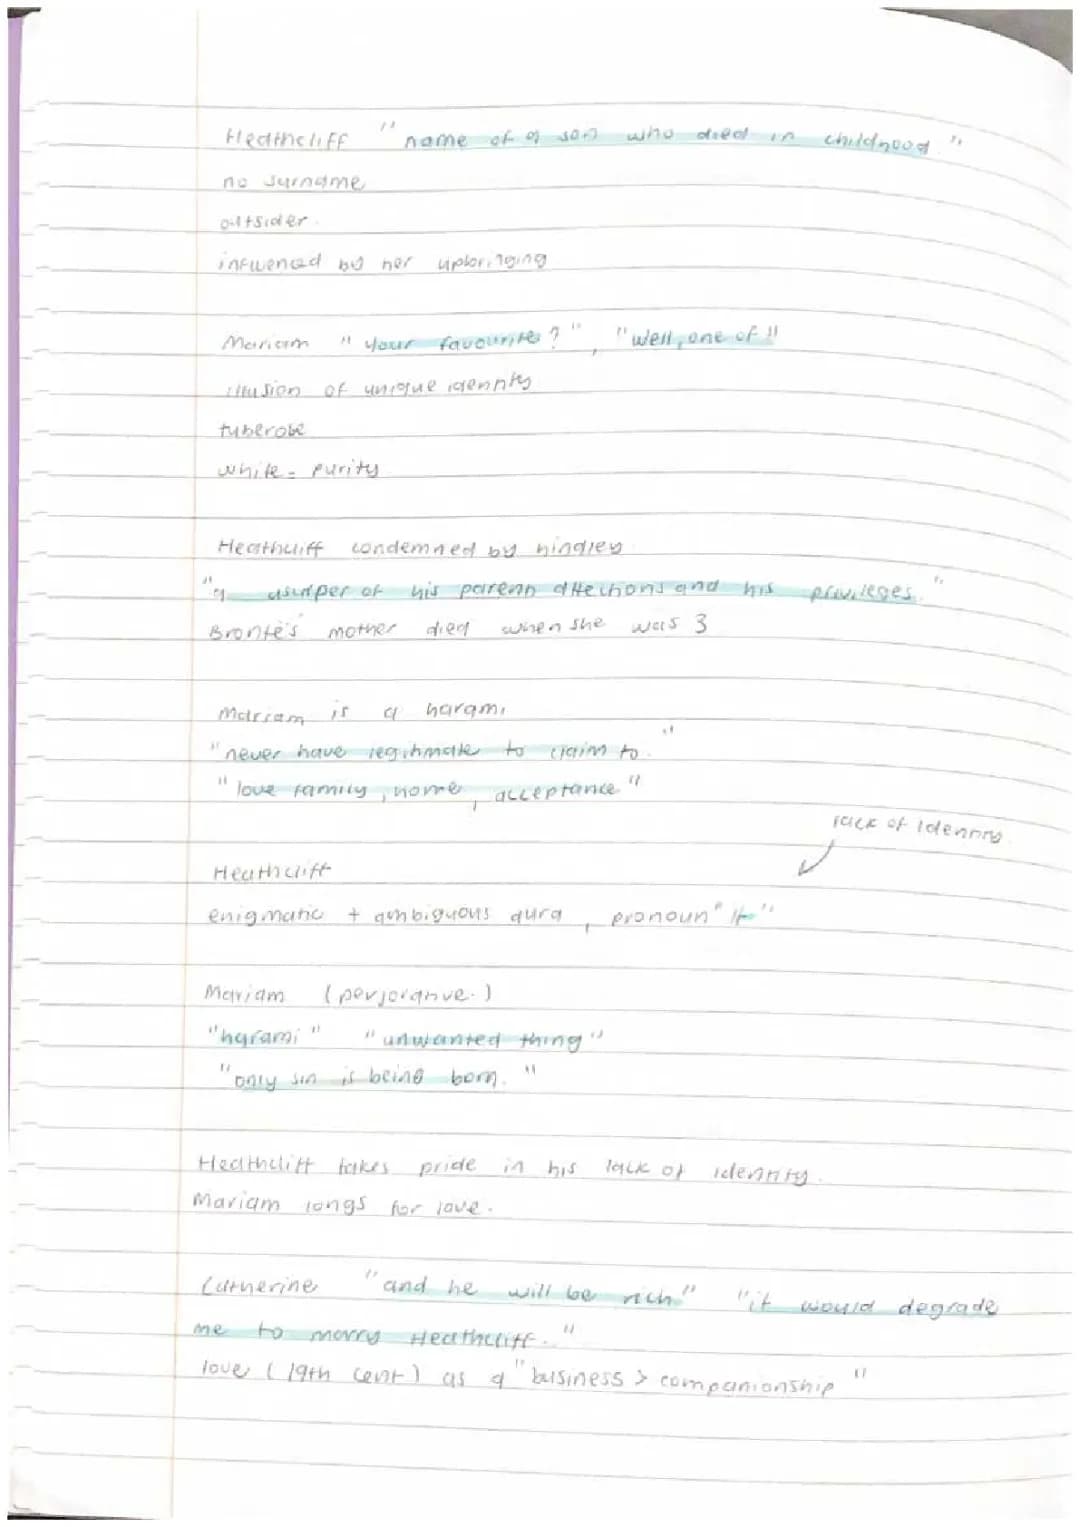 Heathcliff "name of a son who died in childhood."
no surname
outsider.
influenced by her upbringing
Mariam "your favourite?", "well, one of"
illusion of unique identity
tuberose
white = purity
Heathcliff condemned by hindley.
"a usurper of his parents affections and his privileges."
Brontë's mother died when she was 3
Mariam is a harami
"never have legitimate to claim to."
"love family, home, acceptance"
lack of identity.
Heathcliff
enigmatic + ambiguous aura, pronoun "it"
Mariam (perjorative.)
"harami" "unwanted thing"
"only sin is being born."
Heathcliff takes pride in his lack of identity.
Mariam longs for love.
Catherine "and he will be rich" "it would degrade
me to marry Heathcliff."
love (19th cent) as a "business > companionship"